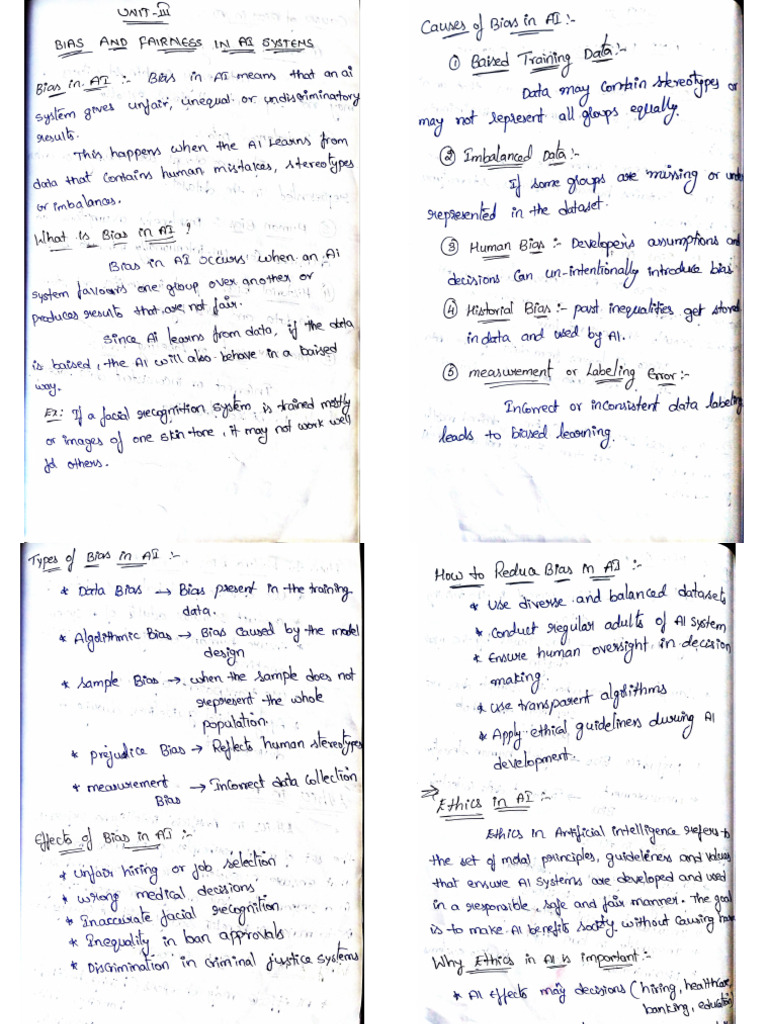 UNIT-III
BIAS AND FAIRNESS IN AI SYSTEMS
Bias in AI :- Bias in AI means that an ai
system gives unfair, unequal or undiscriminatory
results.
This happens when the AI Learns from
data that contains human mistakes, stereotypes
or imbalances.
What Is Bias in AI ?
Bias in AI occurs when an Ai
system favours one group over another or
produces results that are not fair.
Since Ai learns from data, if the data
is baised, the AI will also behave in a baised
way.
Ex: If a facial recognition system is trained mostly
or images of one skin-tone, it may not work well
for others.
Causes of Bias in AI :-
① Baised Training Data :-
Data may contain stereotypes or
may not represent all groups equally.
② Imbalanced Data :-
If some groups are missing or unde
represented in the dataset.
③ Human Bias :- Developer's assumptions and
decisions can un-intentionally introduce bias
④ Historial Bias :- past inequalities get stored
in data and used by AI.
⑤ measurement or Labeling Error :-
Incorrect or inconsistent data labeling
leads to biased learning.
Types of Bias in AI :-
* Data Bias → Bias present in the training
data.
* Algorithmic Bias → Bias caused by the model
design
* sample Bias → when the sample does not
represent the whole
population.
* prejudice Bias → Reflects human stereotypes
* measurement → Incorrect data collection
Bias
Effects of Bias in AI :-
* unfair hiring or job selection
* wrong medical decisions
* Inaccurate facial recognition
* Inequality in ban approvals
* Discrimination in criminal justice systems
How to Redua Bias in AI :-
* use diverse and balanced datasets
* Conduct regular adults of AI system
* Ensure human oversight in decision
making.
* use transparent algorithms
* Apply ethical guideliness during AI
development.
⇒ Ethics in AI :-
Ethics in Artificial intelligence refers to
the set of modal principles, guideleness and values
that ensure AI systems are developed and used
in a responsible, safe and fair manner. The goal
is to make AI benefits society without causing harm
Why Ethics in AI is important :-
* AI effects may decisions (hiring, healthcar,
banking, education